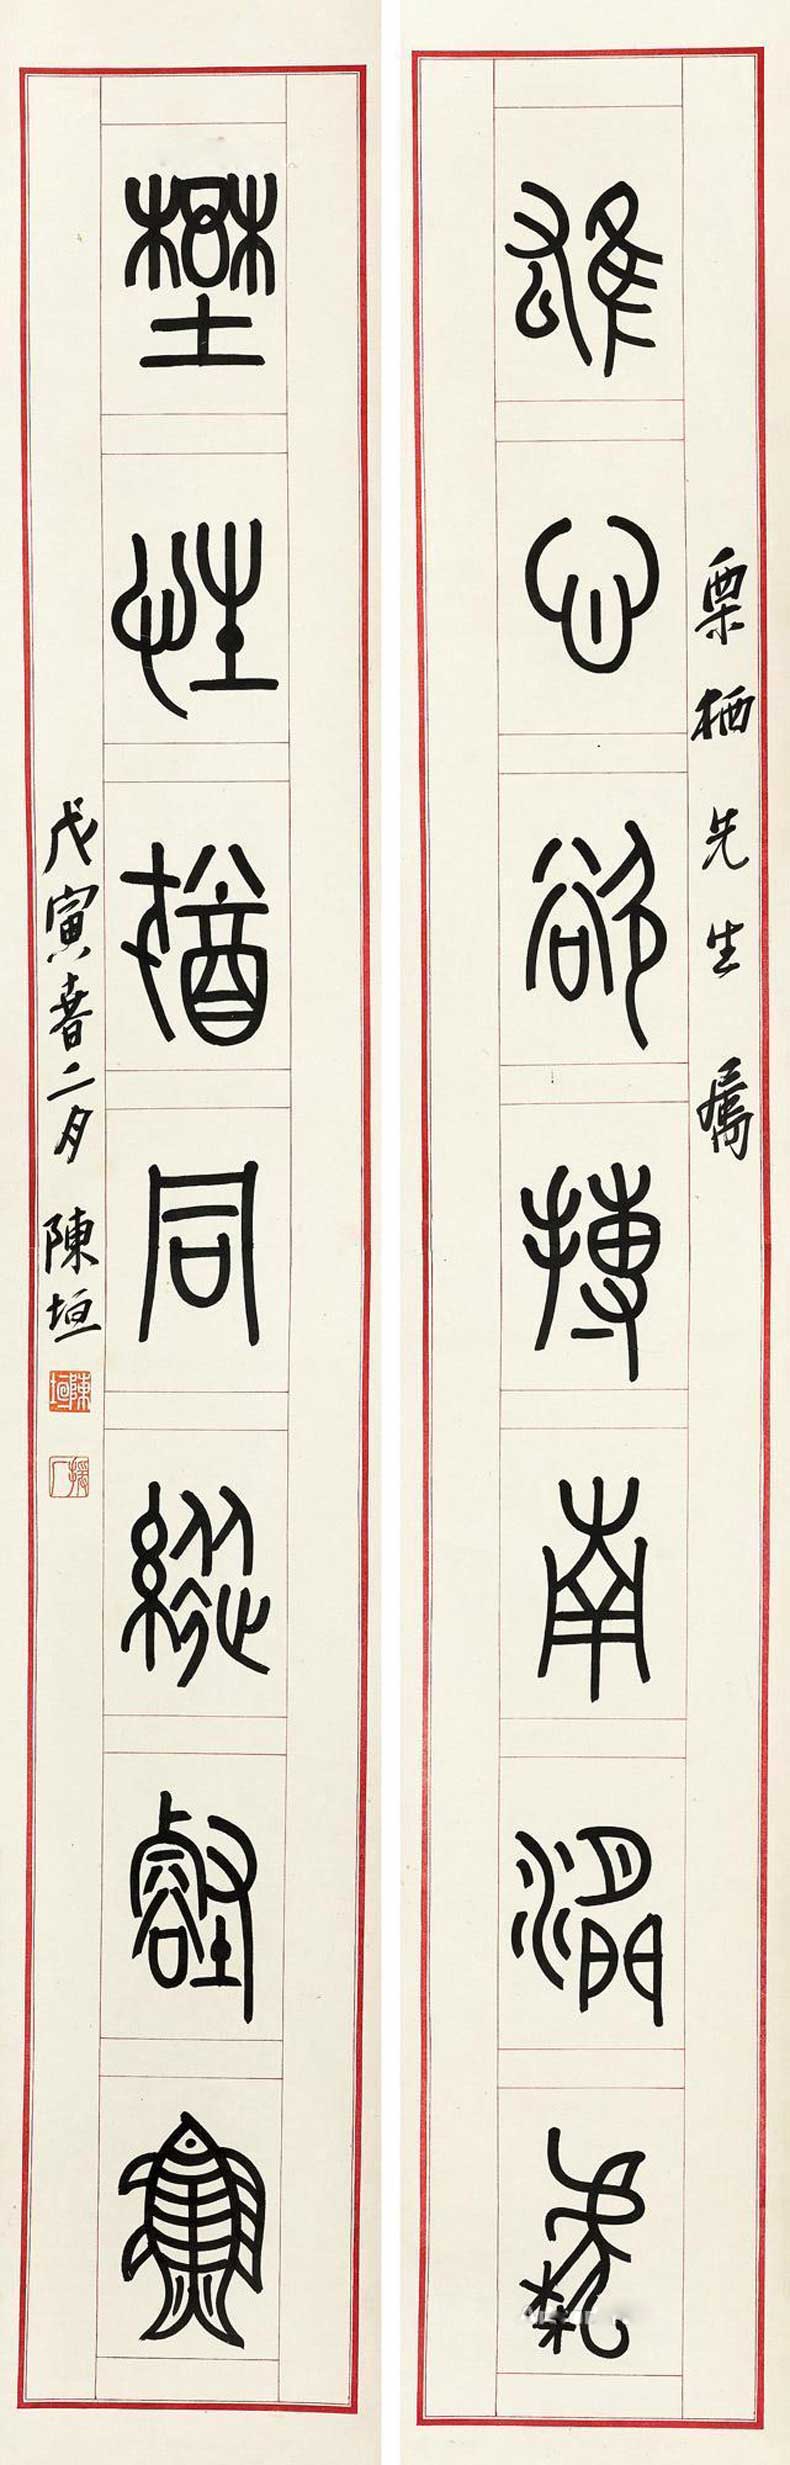 栗栖先生屬
雄心欲搏南澗虎
壄性猶同縱壑魚
戊寅春二月 陳垣
陳垣
援厂